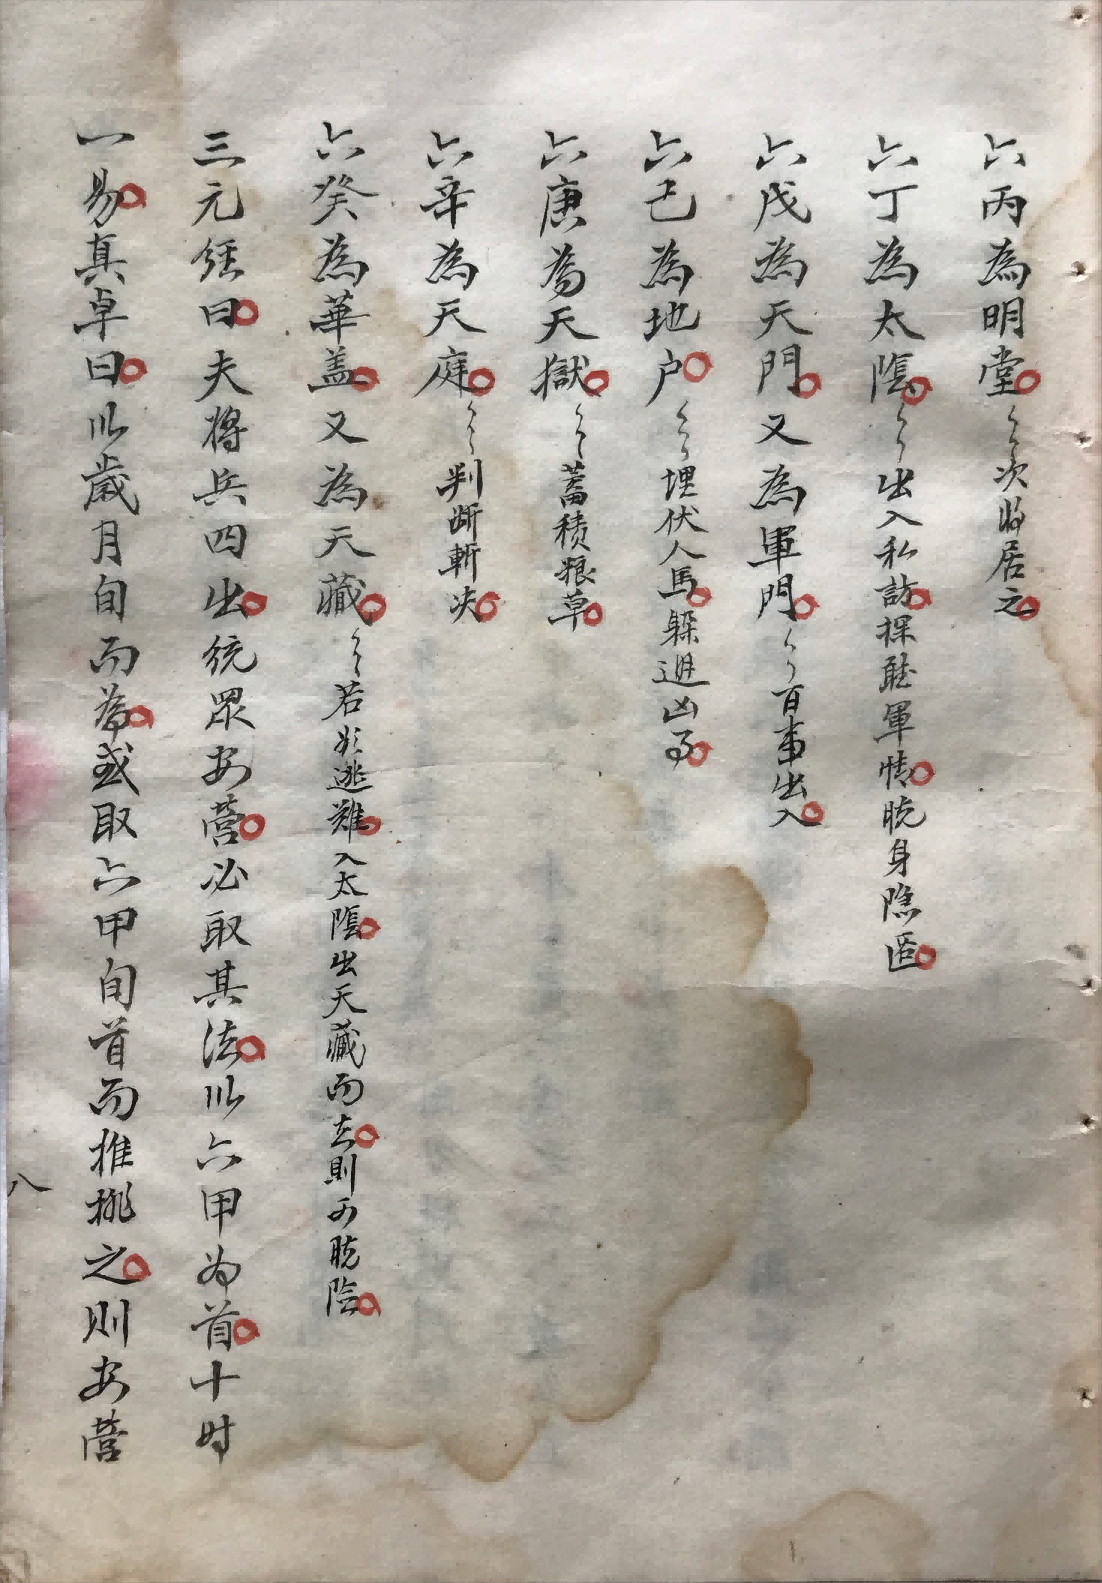 六丙為明堂〻〻次將居之
六丁為太陰〻〻出入私訪探聴軍情脫身隐匿
六戊為天門又為軍門〻〻百事出入
六己為地户〻〻埋伏人馬躲避凶
六庚為天獄〻〻蓄積粮草
六辛為天庭〻〻判断斬决
六癸為華盖又為天藏〻〻若逃難入太陰出天藏而去則可脫險
三元経曰夫將兵四出統眾安營必取其法以六甲为首十时
一易真卓曰以歲月旬而為或取六甲旬首而推挑之則安營
八